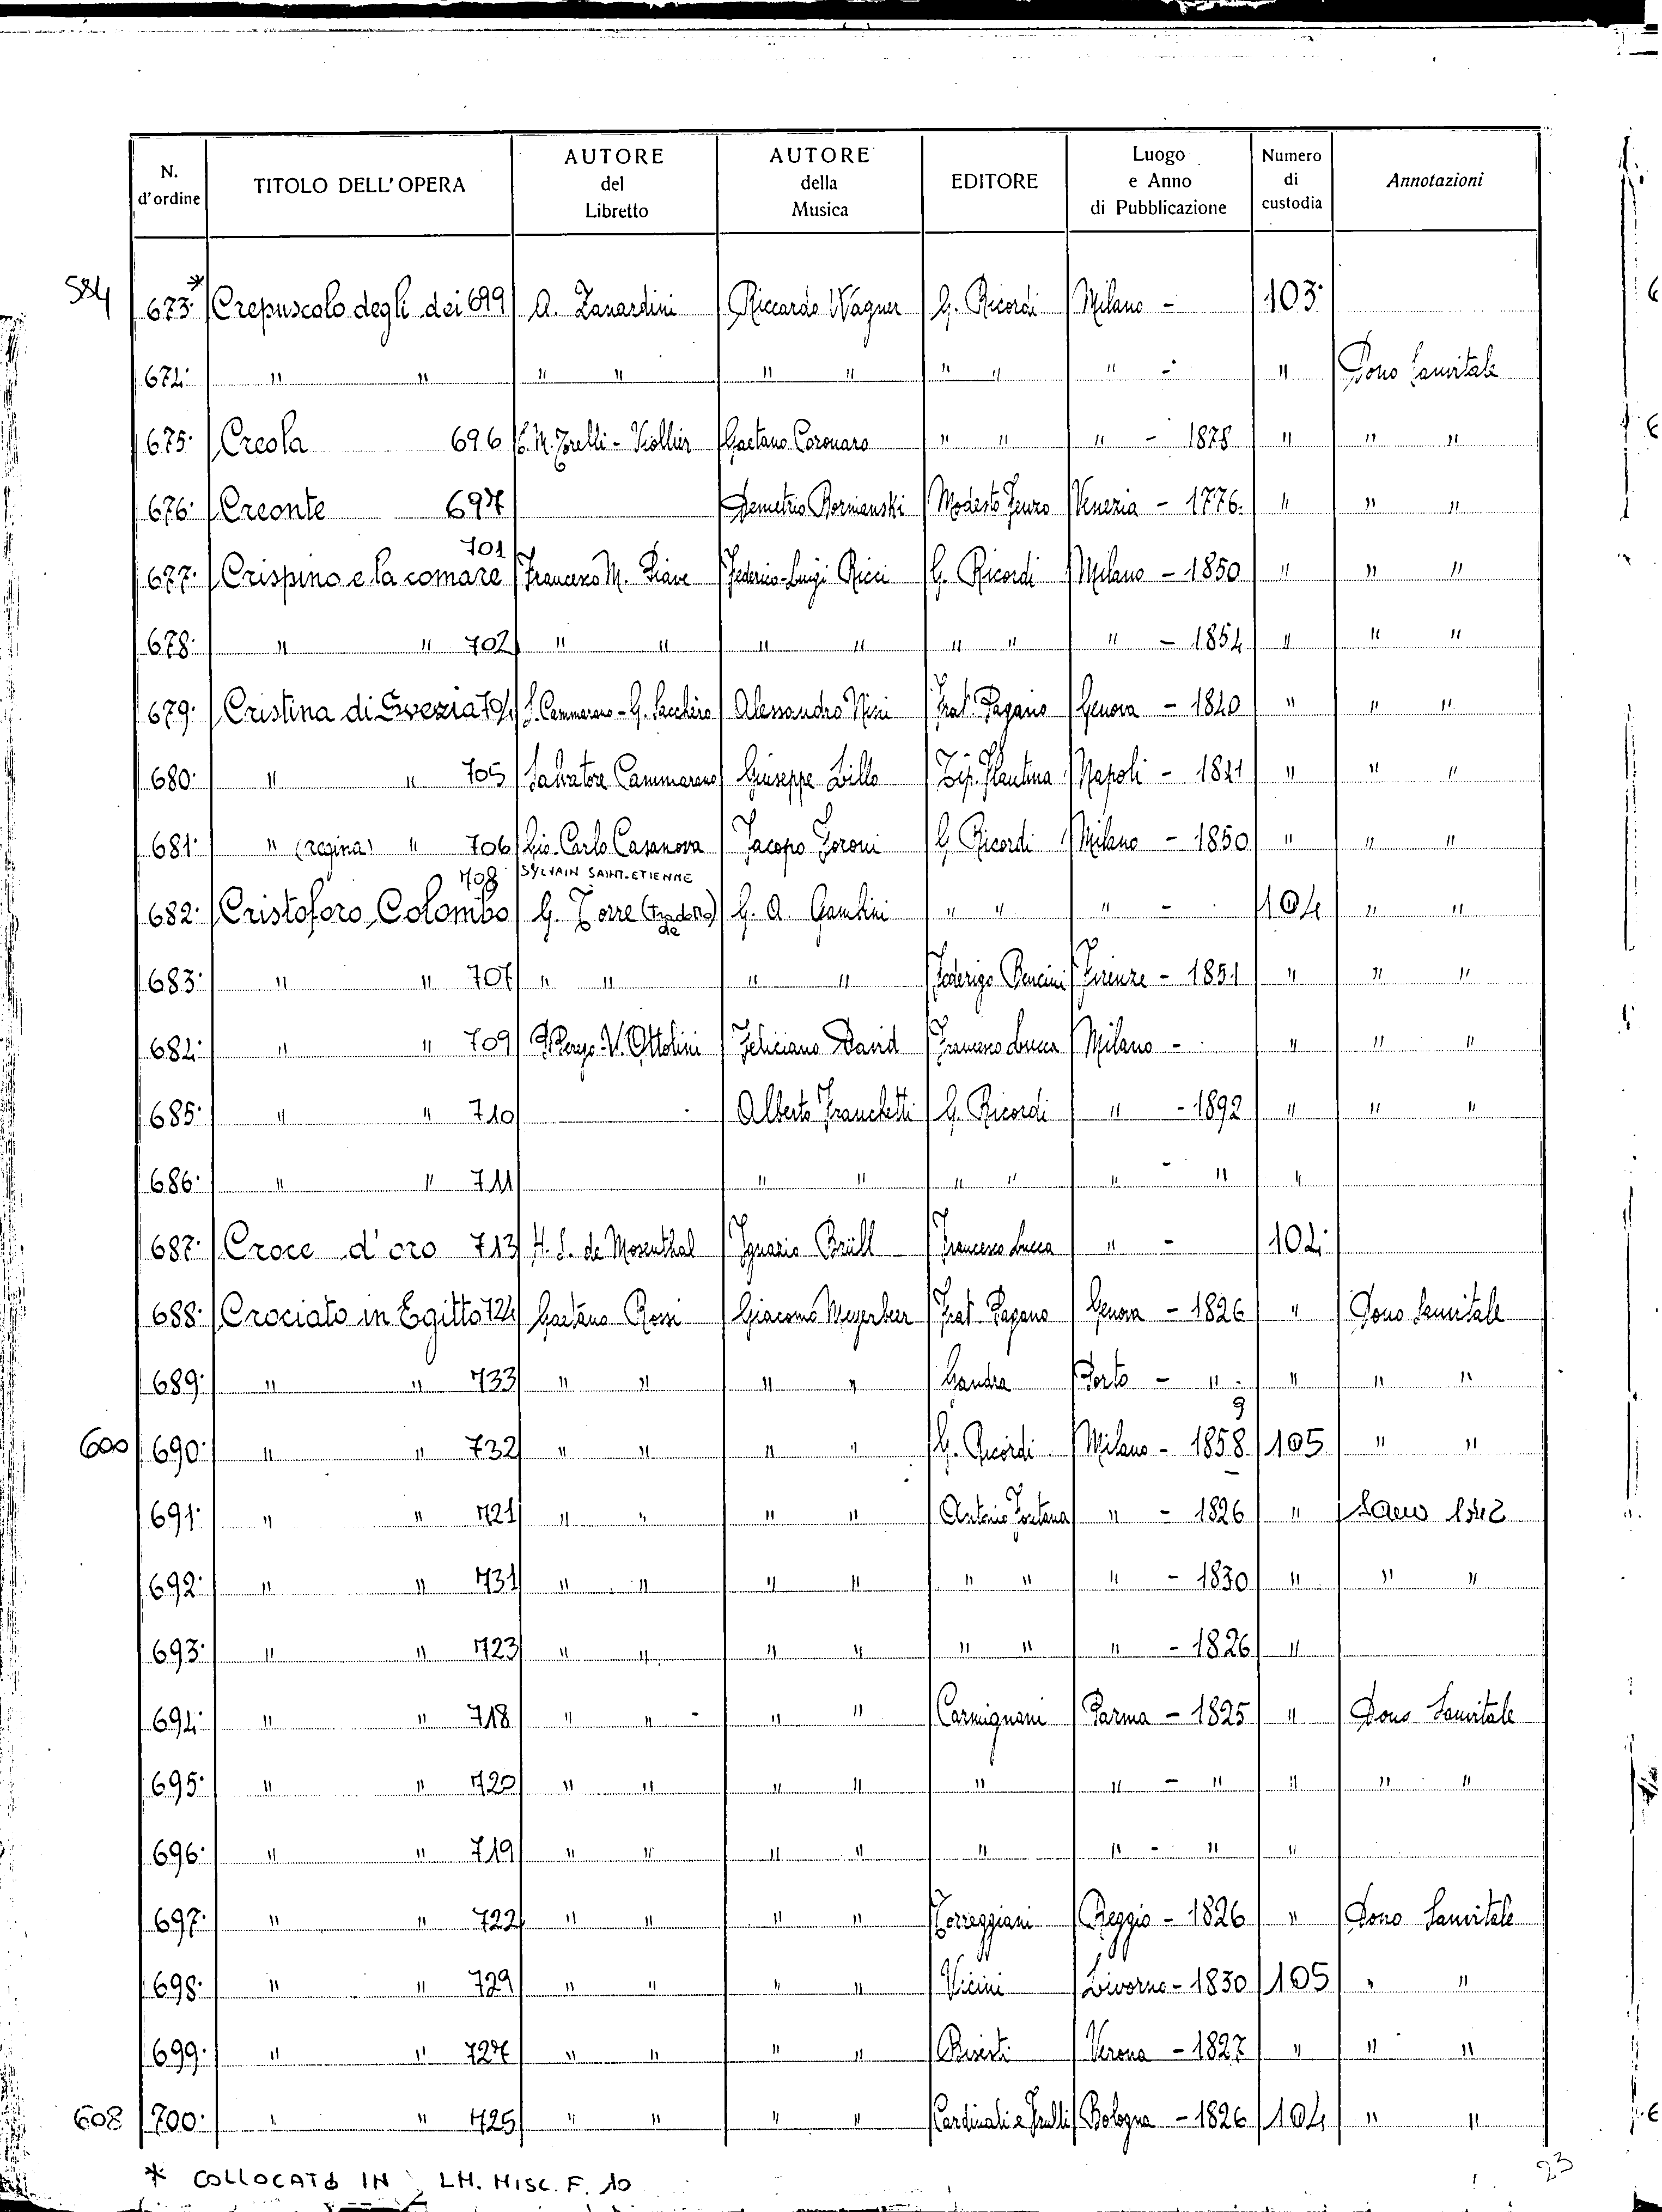 N. d'ordine | TITOLO DELL'OPERA | AUTORE del Libretto | AUTORE della Musica | EDITORE | Luogo e Anno di Pubblicazione | Numero di custodia | Annotazioni
584 673.* Crepuscolo degli dei 699 A. Zanardini Riccardo Wagner G. Ricordi Milano - 103
674. " " " " " " " " " - " Dono Sanvitale
675. Creola 696 Torelli-Viollier Gaetano Coronaro " " " - 1878 " " "
676. Creonte 697 Demetrio Bornianski Modesto Fenzo Venezia - 1776. " " "
701
677. Crispino e la comare Francesco M. Piave Federico-Luigi Ricci G. Ricordi Milano - 1850 " " "
678. " " 702 " " " " " " " - 1854 " " "
679. Cristina di Svezia 704 S. Cammarano - G. Sacchèro Alessandro Nini Frat. Pagano Genova - 1840 " " "
680. " " 705 Salvatore Cammarano Giuseppe Lillo Tip. Plautina Napoli - 1841 " " "
681. " (regina) " 706 Gio. Carlo Casanova Jacopo Foroni G. Ricordi Milano - 1850 " " "
708 SYLVAIN SAINT-ETIENNE
682. Cristoforo Colombo G. Torre G. A. Gambini " " " - 104 " "
683. " " 707 " " " " Federigo Bencini Firenze - 1851 " " "
684. " " 709 V. Ottolini Feliciano David Francesco Lucca Milano - " " "
685. " " 710 Alberto Franchetti G. Ricordi " - 1892 " " "
686. " " 711 " " " " " - " "
687. Croce d'oro 713 H. S. de Mosenthal Ignazio Brüll Francesco Lucca " - 104
688. Crociato in Egitto 724 Gaetano Rossi Giacomo Meyerbeer Frat. Pagano Genova - 1826 " Dono Sanvitale
689. " " 733 " " " " Gandra Porto - " " " "
9
600 690. " " 732 " " " " G. Ricordi Milano - 1858 105 " "
691. " " 721 " " " " Antonio Fontana " - 1826 "
692. " " 731 " " " " " " " - 1830 " " "
693. " " 723 " " " " " " " - 1826 "
694. " " 718 " " " " Carmignani Parma - 1825 " Dono Sanvitale
695. " " 720 " " " " " " - " " " "
696. " " 719 " " " " " " - " "
697. " " 722 " " " " Torreggiani Reggio - 1826 " Dono Sanvitale
698. " " 729 " " " " Vicini Livorno - 1830 105 " "
699. " " 727 " " " " Bisesti Verona - 1827 " " "
608 700. " " 725 " " " " Cardinali e Frulli Bologna - 1826 104 " "
* COLLOCATO IN LH. MISC. F. 10
23